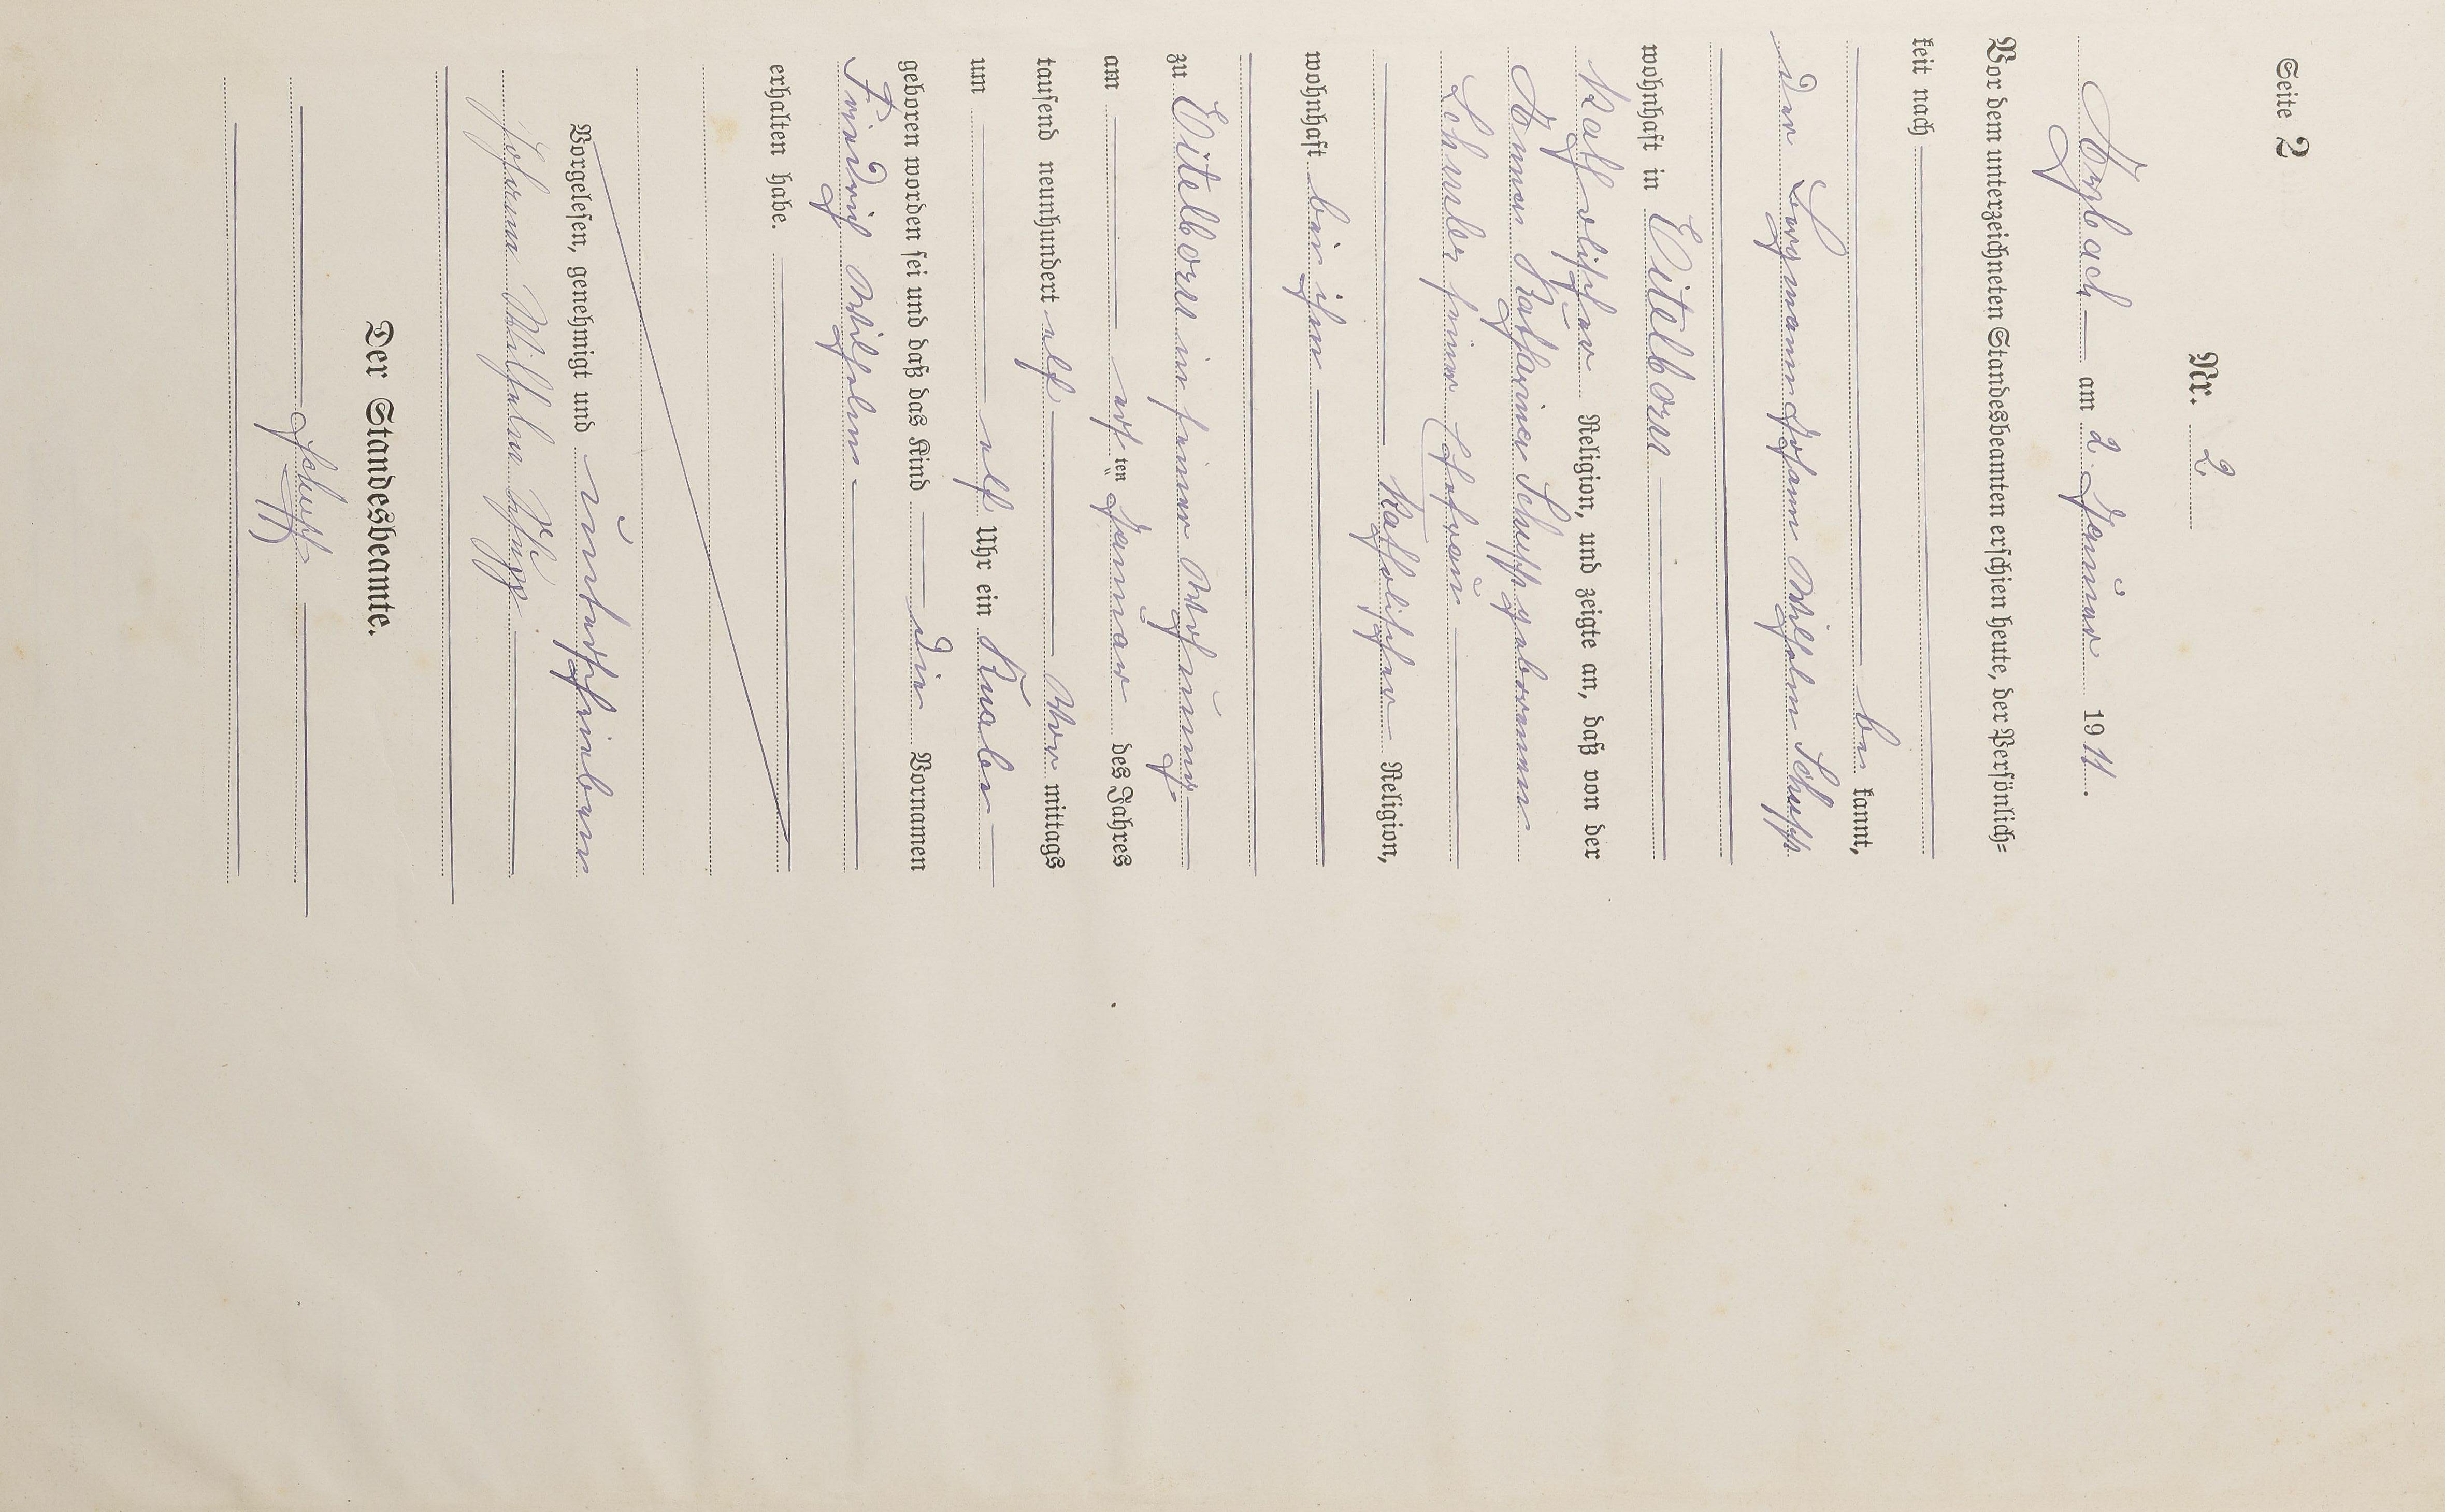 Seite 2
Nr. 2.
Arzbach am 2. Januar 1911.
Vor dem unterzeichneten Standesbeamten erschien heute, der Persönlich=
keit nach
be kannt,
der Bergmann Johann Wilhelm Schupp
wohnhaft in Eitelborn
katholischer Religion, und zeigte an, daß von der
Anna Katharina Schupp geborenen
seiner Ehefrau
katholischer Religion,
wohnhaft bei ihm
zu Eitelborn in seiner Wohnung
am ersten Januar des Jahres
tausend neunhundert elf Vor mittags
um elf Uhr ein Knabe
geboren worden sei und daß das Kind die Vornamen
Friedrich Wilhelm
erhalten habe.
Vorgelesen, genehmigt und unterschrieben
Johann Wilhelm
Der Standesbeamte.
Schupp